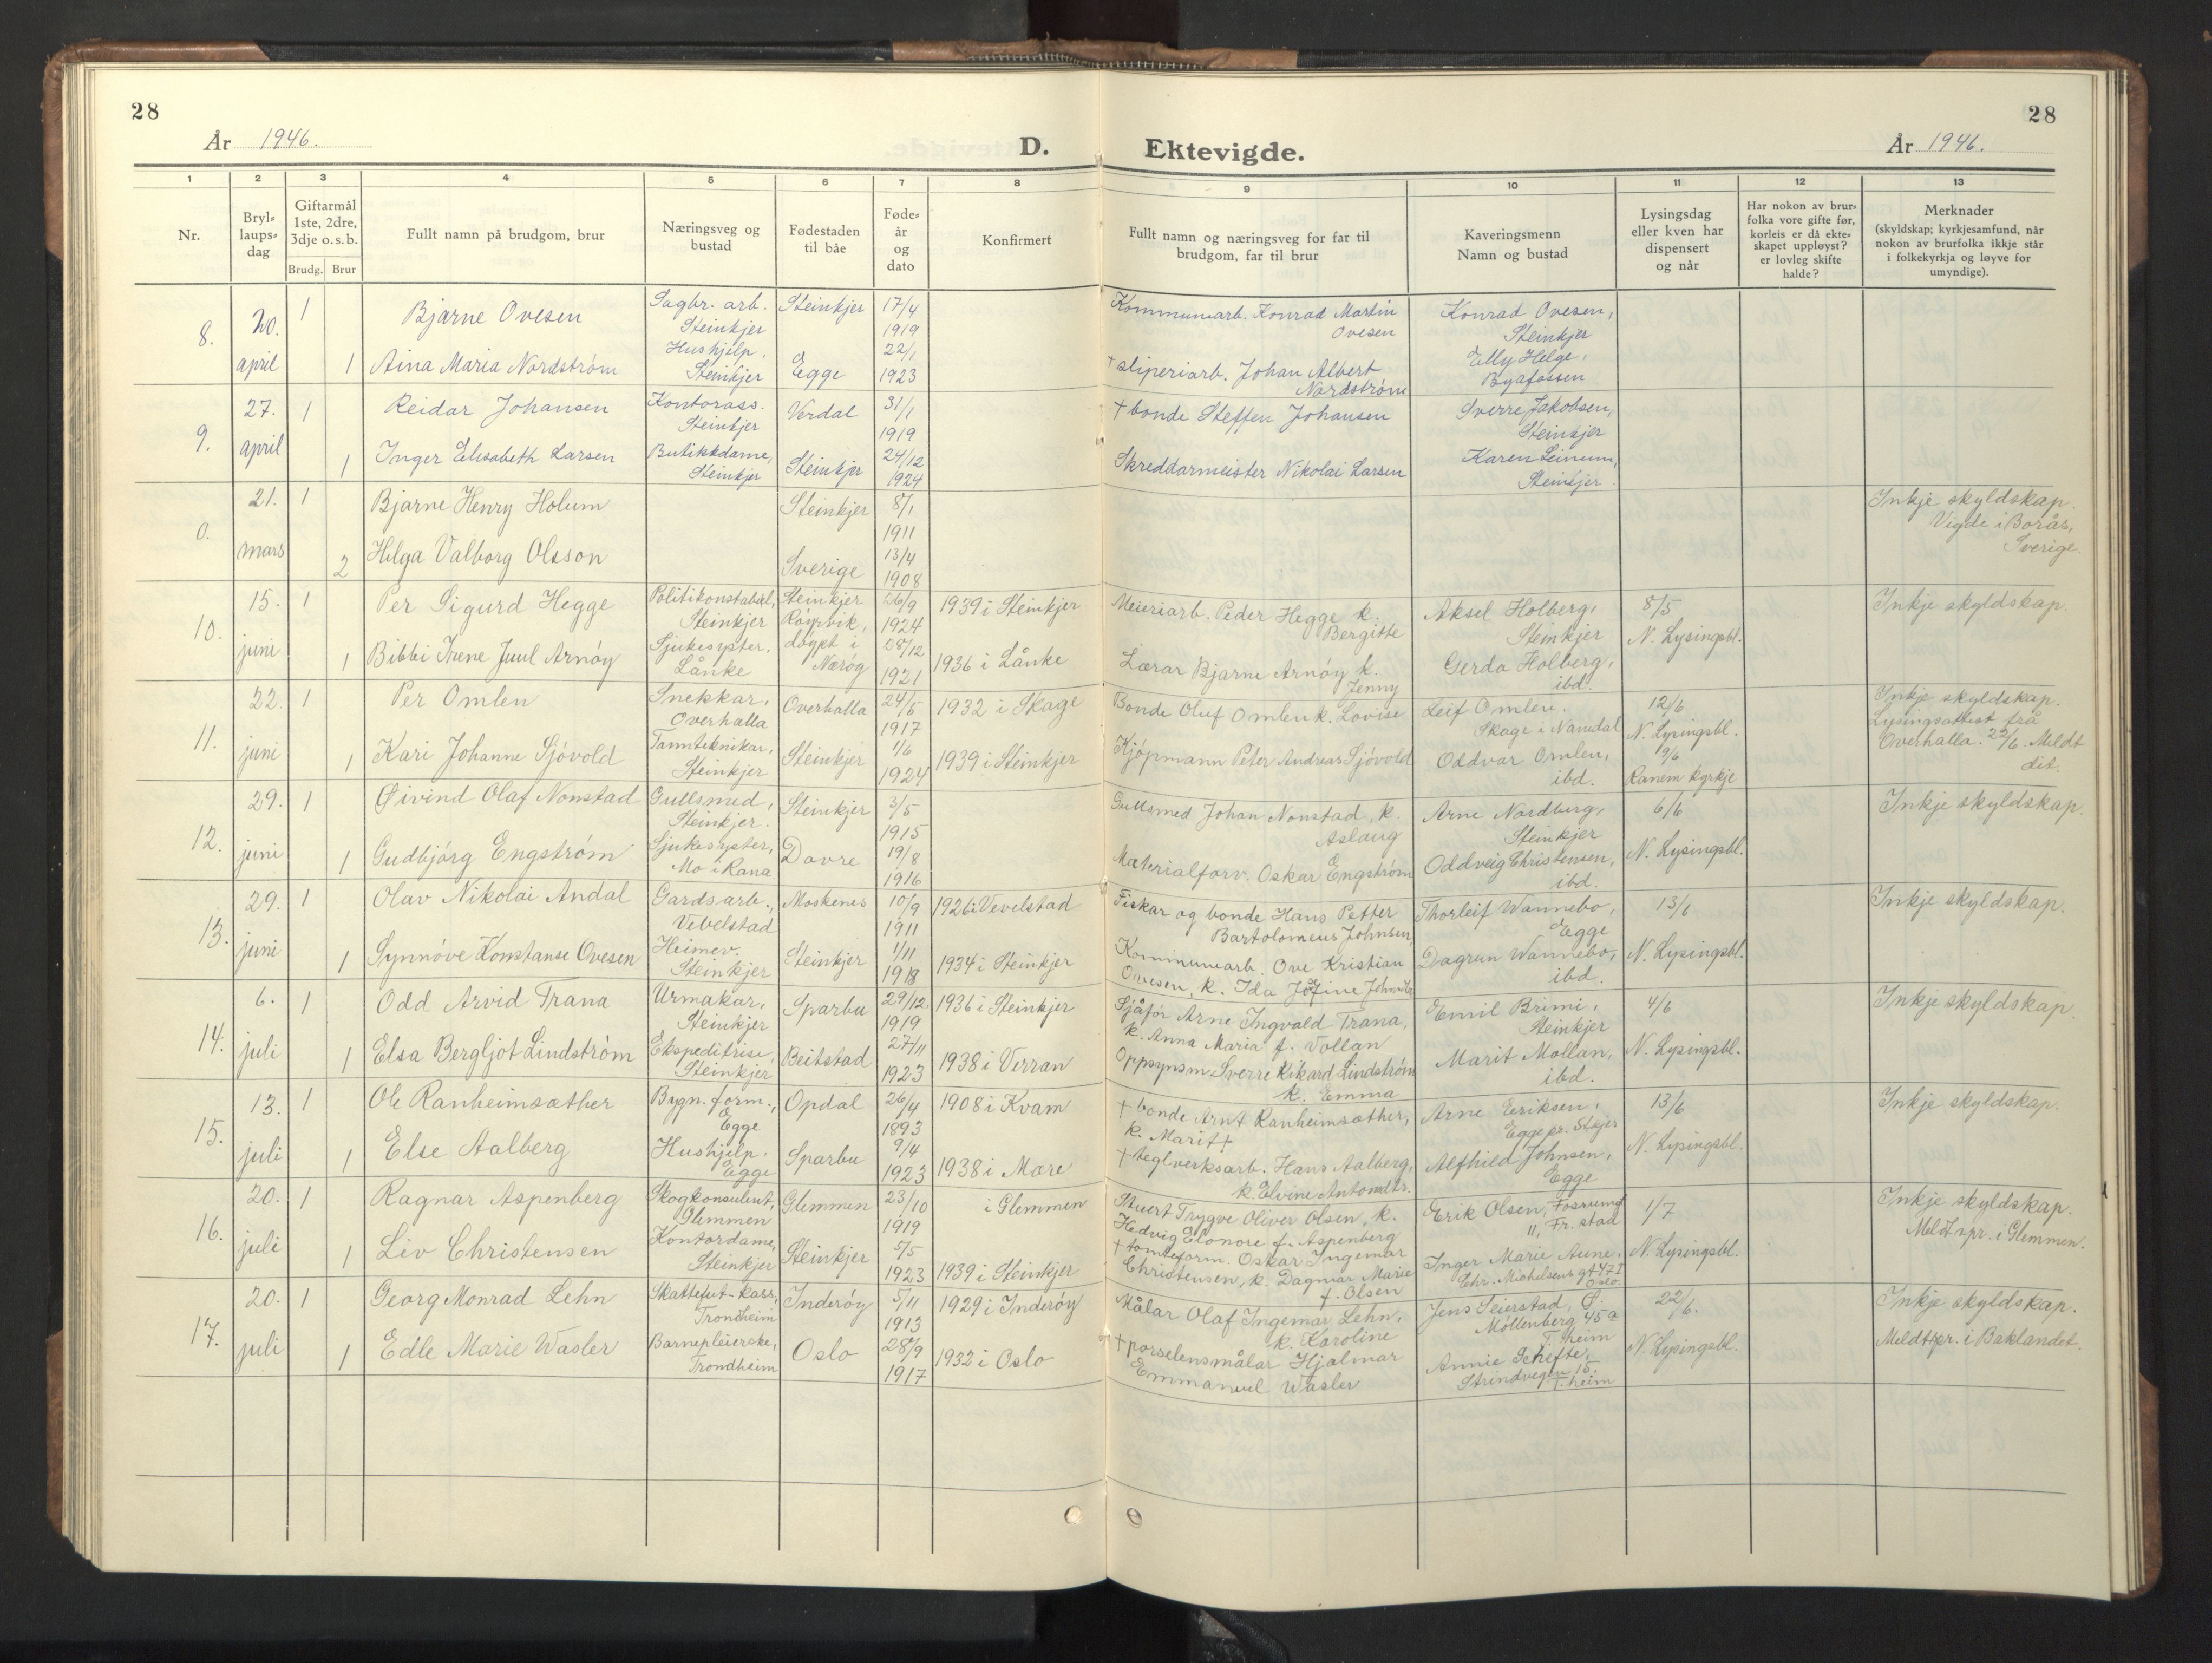 28
År 1946.
D. Ektevigde.
År 1946.
28
1 2 3 4 5 6 7 8 9 10 11 12 13
Nr.
Bryl-
laups-
dag
Giftarmål
1ste, 2dre,
3dje o.s.b.
Brudg. Brur
Fullt namn på brudgom, brur
Næringsveg og
bustad
Fødestaden
til båe
Føde-
år
og
dato
Konfirmert
Fullt namn og næringsveg for far til
brudgom, far til brur
Kaveringsmenn
Namn og bustad
Lysingsdag
eller kven har
dispensert
og når
Har nokon av brur-
folka vore gifte før,
korleis er då ekte-
skapet uppløyst?
er lovleg skifte
halde?
Merknader
(skyldskap; kyrkjesamfund, når
nokon av brurfolka ikkje står
i folkekyrkja og løyve for
umyndige).
8.
20.
april
1
Bjarne Ovesen
Sagbr. arb.
Steinkjer
Steinkjer
17/4
1919
Kommunearb. Konrad Martin
Ovesen
Konrad Ovesen,
Steinkjer
1
Aina Maria Nordström
Hushjelp,
Steinkjer
Egge
22/1
1923
+ sliperiarb. Johan Albert
Nordström
Elly Helge,
Byafossen
9.
27.
april
1
Reidar Johansen
Kontorass.
Steinkjer
Verdal
31/1
1919
+ bonde Steffen Johansen
Sverre Jakobsen,
Steinkjer
1
Inger Elisabeth Larsen
Butikkdame,
Steinkjer
Steinkjer
24/12
1924
Skreddarmeister Nikolai Larsen
Karen Leinum,
Steinkjer.
0.
21.
mars
1
Bjarne Henry Holum
Steinkjer
8/1
1911
Inkje skyldskap.
Vigde i Borås,
Sverige.
2
Helga Valborg Olsson
Sverige
13/4
1908
10.
15.
juni
1
Per Sigurd Hegge
Politikonstabel,
Steinkjer
Steinkjer
26/9
1924
1939 i Steinkjer
Meieriarb. Peder Hegge k.
Bergitte
Aksel Holberg,
Steinkjer
8/5
N. Lysingsbl.
Inkje skyldskap.
1
Bibbi Irene Juul Arnöy
Sjukesyster,
Lånke
Röyrvik,
döypt i
Næröy
08/12
1921
1936 i Lånke
Lærar Bjarne Arnöy k.
Jenny
Gerda Holberg,
ibd.
11.
22.
juni
1
Per Omlen
Snekkar,
Overhalla
Overhalla
24/5
1917
1932 i Skage
Bonde Oluf Omlen k. Lovise
Leif Omlen,
Skage i Namdal
12/6
N. Lysingsbl.
Inkje skyldskap.
Lysingsattest frå
Overhalla. 22/6. Meldt
dit.
1
Kari Johanne Sjövold
Tannteknikar,
Steinkjer
Steinkjer
1/6
1924
1939 i Steinkjer
Kjöpmann Peter Andreas Sjövold
Oddvar Omlen,
ibd.
9/6
Ranem kyrkje
12.
29.
juni
1
Øivind Olaf Nonstad
Gullsmed,
Steinkjer.
Steinkjer
3/5
1915
Gullsmed Johan Nonstad, k.
Aslaug
Arne Nordberg,
Steinkjer
6/6
N. Lysingsbl.
Inkje skyldskap.
1
Gudbjörg Engström
Sjukesyster,
Mo i Rana
Dovre
19/8
1916
Materialforv. Oskar Engström
Oddveig Christensen,
ibd.
13.
29.
juni
1
Olav Nikolai Andal
Gardsarb.,
Vevelstad
Moskenes
10/9
1911
1926 i Vevelstad
Fiskar og bonde Hans Petter
Bartolomeus Johnsen,
Thorleif Wannebo,
Egge
13/6
N. Lysingsbl.
Inkje skyldskap.
1
Synnöve Konstanse Ovesen
Heimev.
Steinkjer
Steinkjer
1/11
1918
1934 i Steinkjer
Kommunearb. Ove Kristian
Ovesen, k. Ida Josefine
Dagrun Wannebo,
ibd.
14.
6.
juli
1
Odd Arvid Trana
Urmakar,
Steinkjer
Sparbu
29/12
1919
1936 i Steinkjer
Sjåför Arne Ingvald Trana,
k. Anna Maria f. Vollan
Emil Brimi,
Steinkjer
4/6
N. Lysingsbl.
Inkje skyldskap.
1
Elsa Bergljot Lindström
Ekspeditrise,
Steinkjer
Beitstad
27/11
1923
1938 i Verran
Oppsynsm Sverre Rikard Lindström
k. Emma
Marit Mollan,
ibd.
15.
13.
juli
1
Ole Ranheimsæther
Bygn. form.,
Egge
Opdal
26/4
1893
1908 i Kvam
+ bonde Arnt Ranheimsæther,
k. Marit +
Arne Eriksen,
Egge pr. Stkjer
13/6
N. Lysingsbl.
Inkje skyldskap.
1
Else Aalberg
Hushjelp.
Egge
Sparbu
9/4
1923
1938 i Mære
+ teglverksarb. Hans Aalberg,
k. Elvine Antondtr.
Alfhild Johnsen,
Egge
16.
20.
juli
1
Ragnar Aspenberg
Skogkonsulent,
Glemmen
Glemmen
23/10
1919
i Glemmen
Stuert Trygve Oliver Olsen, k.
Hedvig Elonore f. Aspenberg
Erik Olsen,
11, Fr. stad
1/7
N. Lysingsbl.
Inkje skyldskap.
Meldt spr. i Glemmen.
1
Liv Christensen
Kontordame,
Steinkjer
Steinkjer
5/5
1923
1939 i Steinkjer
+ tomteform. Oskar Ingemar
Christensen, k. Dagmar Marie
f. Olsen
Inger Marie Aune,
Chr. Michelsens gt 47 I
Oslo.
17.
20.
juli
1
Georg Monrad Lehn
Skattefut-kass,
Trondheim
Inderöy
5/11
1913
1929 i Inderöy
Målar Olaf Ingemar Lehn,
k. Karoline
Jens Seierstad, Ø.
Möllenberg 45 a
T. heim
22/6.
N. Lysingsbl.
Inkje skyldskap.
Meldt spr. i Baklandet.
1
Edle Marie Wasler
Barnepleierske,
Trondheim
Oslo
28/9
1917
1932 i Oslo
+ porselensmålar Hjalmar
Emmanuel Wasler
Annie Schefte,
Strindvegen 15,
T. heim